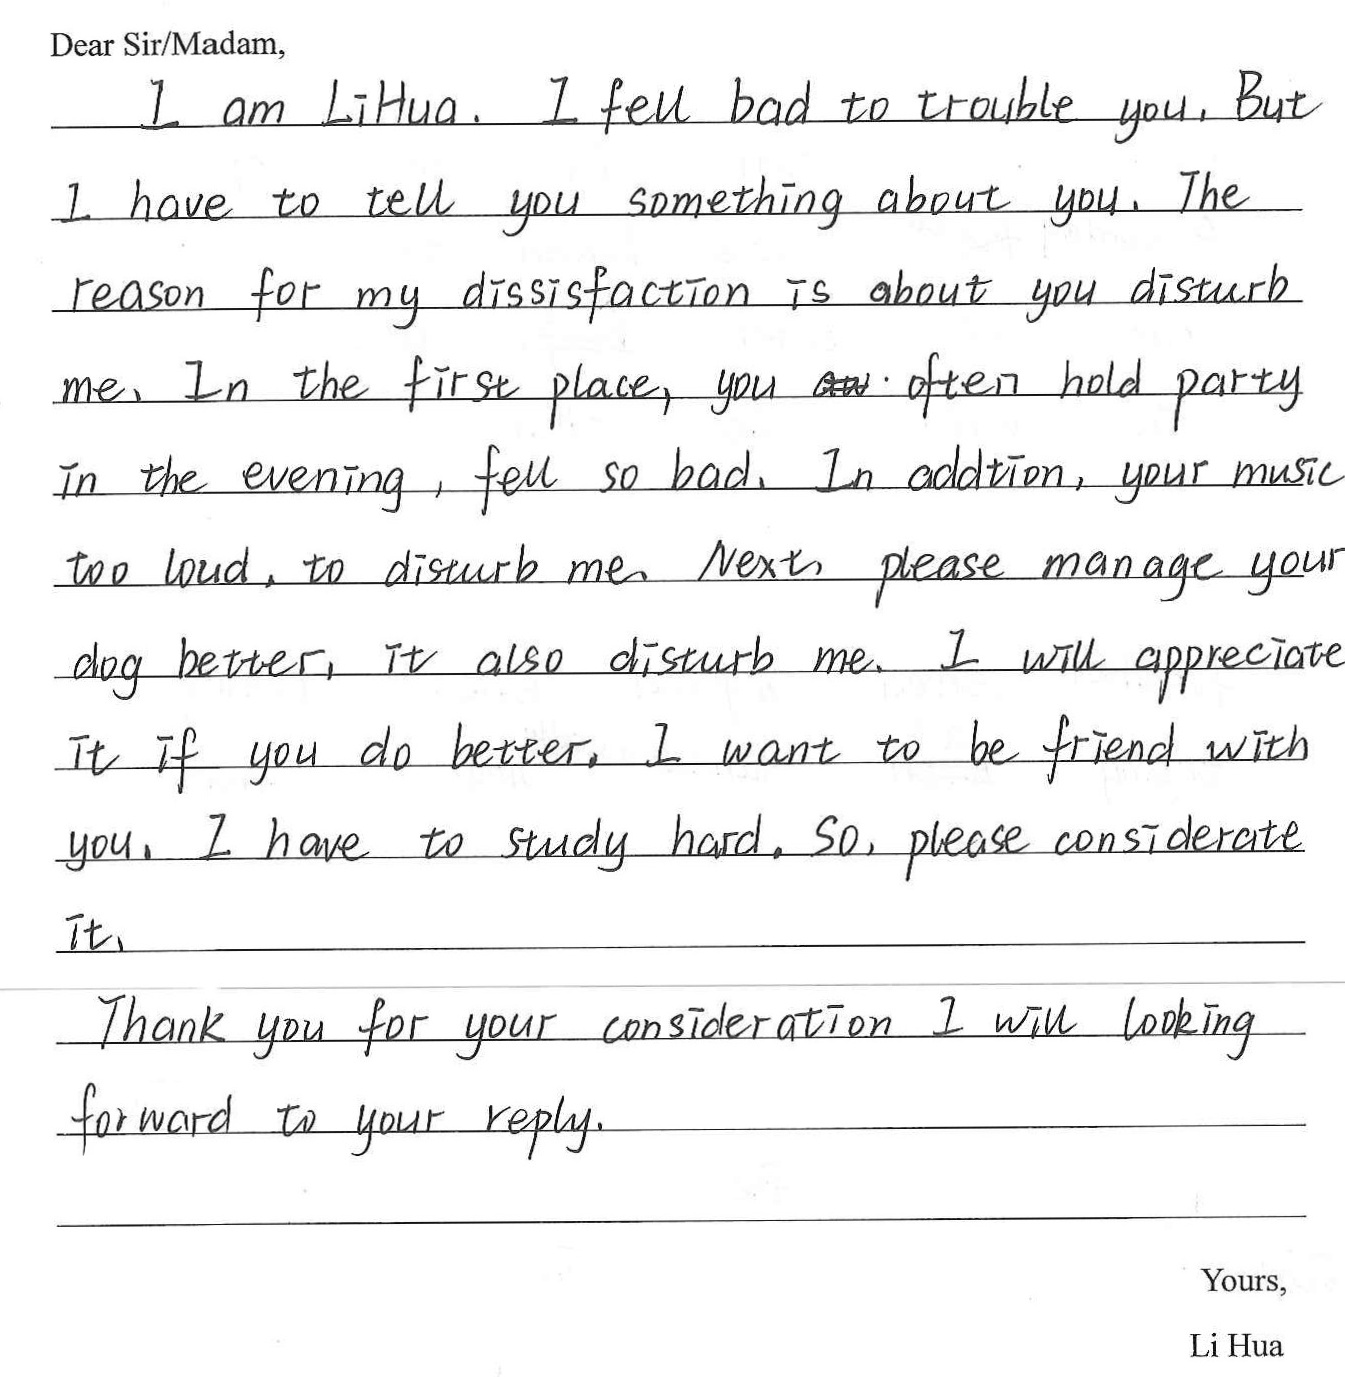 Dear Sir/Madam,
I am LiHua. I fell bad to trouble you. But
I have to tell you something about you. The
reason for my dissisfaction is about you disturb
me. In the first place, you often hold party
in the evening, fell so bad. In addtion, your music
too loud, to disturb me. Next, please manage your
dog better, it also disturb me. I will appreciate
it if you do better. I want to be friend with
you. I have to study hard. So, please considerate
it.
Thank you for your consideration I will looking
forward to your reply.
Yours,
Li Hua